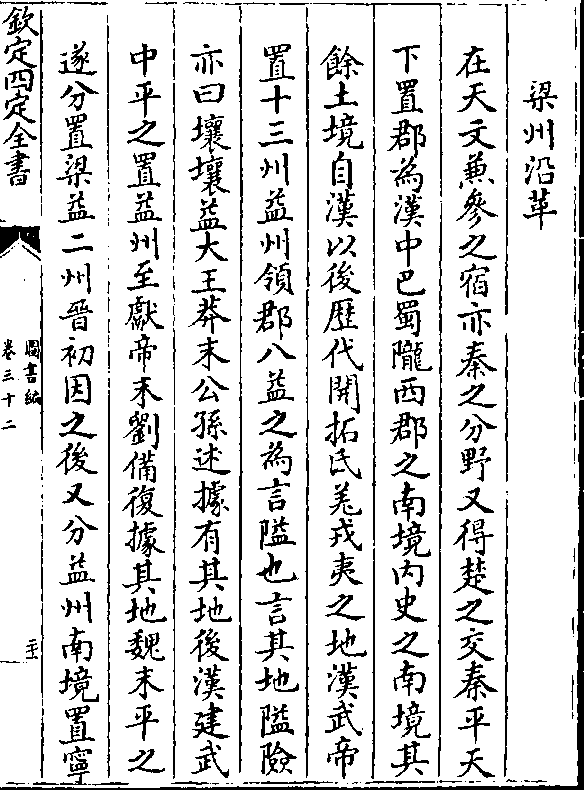 梁州沿革
在天文兼參之宿亦秦之分野又得楚之交秦平天
下置郡為漢中巴蜀隴西郡之南境内史之南境其
餘土境自漢以後歴代開拓氐羌戎夷之地漢武帝
置十三州益州領郡八益之為言隘也言其地隘險
亦曰壤壤益大王莽末公孫述據有其地後漢建武
中平之置益州至獻帝末劉備復據其地魏末平之
遂分置梁益二州晉初因之後又分益州南境置寧
欽定四定全書
圖書編
卷三十二